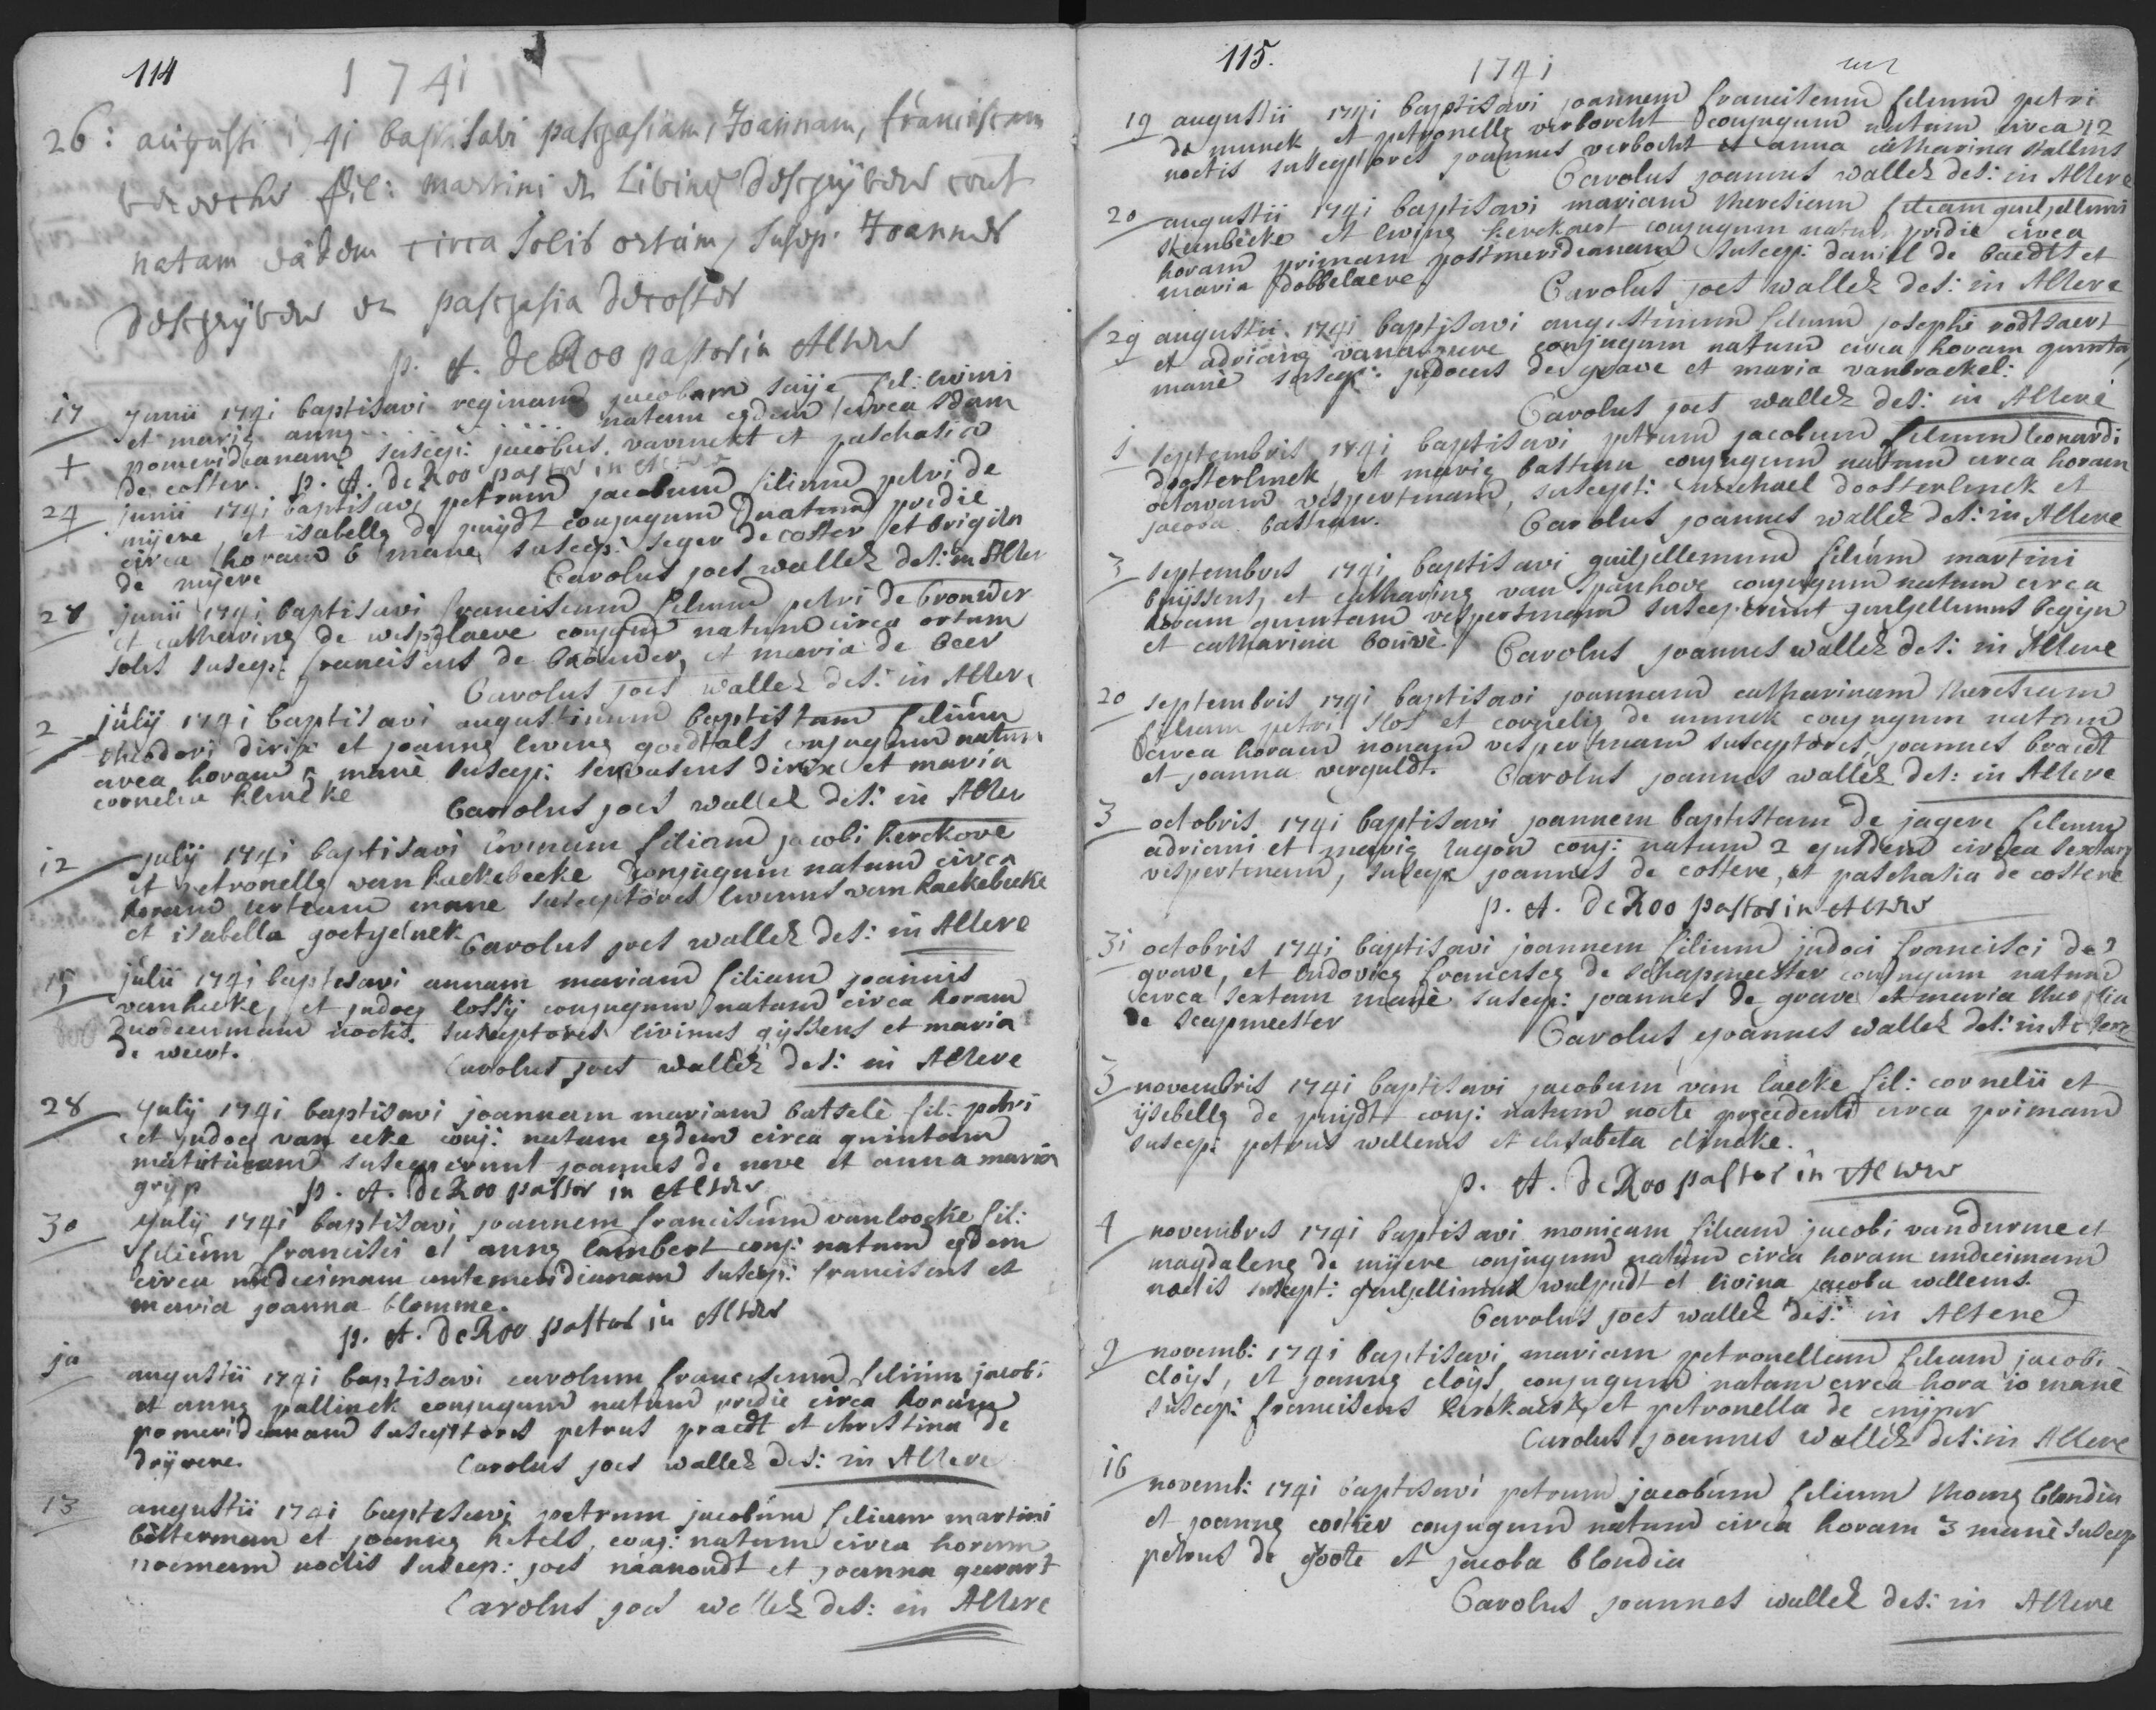 114
1741
26: augusti 1741 baptisavi pasgasiam, Joannam, franciscam
fil: martini et Livinæ descryver cont
natam eadem circa solis ortum, suscep. Joannes
descryver et pasgasia decoster
p. A. de Roo pastor in Alter
17 Junii 1741 baptisavi reginam jacobam suÿe fil: livini
et mariæ annæ ... natam eadem circa 3dam
pomeridianam suscep: jacobus et paschasia
de coster. p. A. de Roo pastor in Alter
24 junii 1741 baptisavi petrum jacobum filium petri de
mÿere, et isabellæ de puÿdt conjugum natum pridie
circa horam 6 mane, suscep: seger de coster et brigita
de mÿere Carolus joes wallez des: in Alter
28 junii 1741 baptisavi franciscum filium petri de brouwer
et catharinæ de wispelaere conjum natum circa ortum
solis suscep: franciscus de brouwer, et maria de beer
Carolus joes wallez des: in Altere
2 julÿ 1741 baptisavi augustinum baptistam filium
theodori dirix et joannæ livinæ goedtals conjugum natum
circa horam 5 manè suscep: servatius dirix et maria
cornelia klincke Carolus joes wallez des: in Alter
12 julÿ 1741 baptisavi livinam filiam jacobi kerckove
et petronellæ van haekebeeke conjugum natam circa
horam tertiam mane susceptores livinus van haekebeeke
et isabella goetgeluck Carolus joes wallez des: in Altere
15 julii 1741 baptisavi annam mariam filiam joannis
vanhecke, et judocæ lossÿ conjugum natam circa horam
duodecimam noctis. susceptores livinus gÿssens et maria
de weert. Carolus joes wallez des: in Altere
28 Julÿ 1741 baptisavi joannam mariam batselè fil: petri
et judocæ van ecke conj: natam eadem circa quintam
matutinam susceperunt joannes de neve et anna maria
grÿp p. A. de Roo pastor in Alter
30 Julÿ 1741 baptisavi joannem franciscum vanloocke fil:
filium francisci et annæ lambert conj: natum eadem
circa undecimam antemeridianam suscep: franciscus et
maria joanna blomme.
p. A. de Roo pastor in Alter
10 augustii 1741 baptisavi carolum franciscum filium jacobi
et annæ pallinck conjugum natum pridie circa horam
pomeridianam susceptores petrus praedt et christina de
drÿvere. Carolus joes wallez des: in Altere
13 augustii 1741 baptisavi petrum jacobum filium martini
bulterman et joannæ hetels, conj: natum circa horam
noctis suscep: joes naanoudt et joanna gevaert
Carolus joes wallez des: in Altere
115.
1741
19 augustii 1741 baptisavi joannem franciscum filium petri
de munck et petronellæ verborcht conjugum natum circa 12
noctis susceptores joannes verbocht et anna catharina stallens
Carolus joannes wallez des: in Altere
20 augustii 1741 baptisavi mariam theresiam filiam guiljellmi
steenbeke et livinæ kerckaert conjugum natam pridie circa
horam primam postmeridianam suscep: daniel de baedts et
maria dobbelaere Carolus joes wallez des: in Altere
29 augustii 1741 baptisavi augustinum filium josephi rodtsaert
et adrianæ conjugum natum circa horam quintam
manè suscep: judocus de grave et maria vanbraekel:
Carolus joes wallez des: in Alterè
1 septembris 1741 baptisavi petrum jacobum filium leonardi
doosterlinck et mariæ batteau conjugum natum circa horam
octavam vespertinam, suscept: michael doosterlinck et
jacoba batteau. Carolus joannes wallez des: in Altere
3 septembris 1741 baptisavi guiljellemum filium martini
buÿssens, et catharinæ van spanhove conjugum natum circa
horam quintam vespertinam susceperunt guiljellmus begÿn
et catharina bouvè Carolus joannes wallez des: in Altere
20 septembris 1741 baptisavi joannam catharinam theresiam
filiam petri slos et corneliæ de munck conjugum natam
circa horam nonam vespertinam susceptores joannes braedt
et joanna verguldt. Carolus joannes wallez des: in Altere
3 octobris 1741 baptisavi joannem baptistam de jagere filium
adriani et mariæ lagon conj: natum 2 ejusdem circea sextam
vespertinam, suscep joannes de costere, et paschasia de costere
p. A. de Roo pastor in Alter
31 octobris 1741 baptisavi joannem filium judoci francisci de
grave, et ludovicæ franciscæ de schapmeester conjugum natum
circa sextam manè suscep: joannes de grave et maria theresia
de scepmeester Carolus joannes wallez des: in Altere
3 novembris 1741 baptisavi jacobum van laecke fil: cornelii et
ÿsebellæ de puijdt conj: natum nocte præcedenti circa primam
suscep: petrus wellems et elisabeta clincke.
p. A. de Roo pastor in Alter
4 novembris 1741 baptisavi monicam filiam jacobi vandurme et
magdalenæ de mÿere conjugum natam circa horam undecimam
noctis suscept: guiljellimus wulpudt et livina jacoba wellems.
Carolus joes wallez des: in Altere
9 novemb: 1741 baptisavi mariam petronellam filiam jacobi
cloÿs, et joannæ cloÿs, conjugum natam circa hora 10 manè
suscep: franciscus kerckaert, et petronella de cuÿper
Carolus joannes wallez des: in Altere
16 novemb: 1741 baptisavi petrum jacobum filium thomæ blondia
et joannæ cothier conjugum natum circa horam 3 manè suscep
petrus de groote et jacoba blondia
Carolus joannes wallez des: in Altere